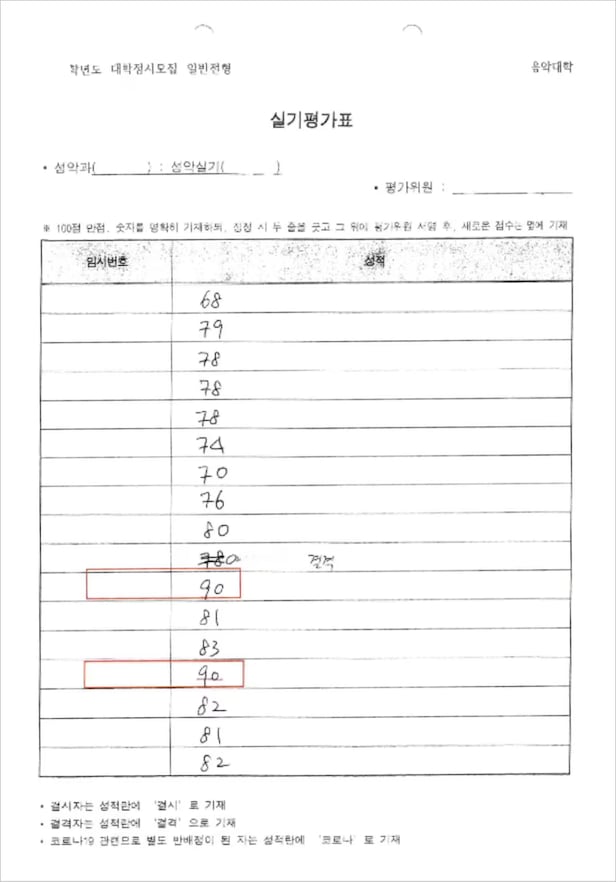 학년도 대학정시모집 일반전형 음악대학
실기평가표
• 성악과( ) : 성악실기( )
• 평가위원 :
※ 100점 만점. 숫자를 명확히 기재하되, 정정 시 두 줄을 긋고 그 위에 평가위원 서명 후, 새로운 점수는 옆에 기재
임시번호 성적
68
79
78
78
78
74
70
76
80
결격
90
81
83
90
82
81
82
• 결시자는 성적란에 '결시' 로 기재
• 결격자는 성적란에 '결격' 으로 기재
• 코로나19 관련으로 별도 반배정이 된 자는 성적란에 '코로나' 로 기재